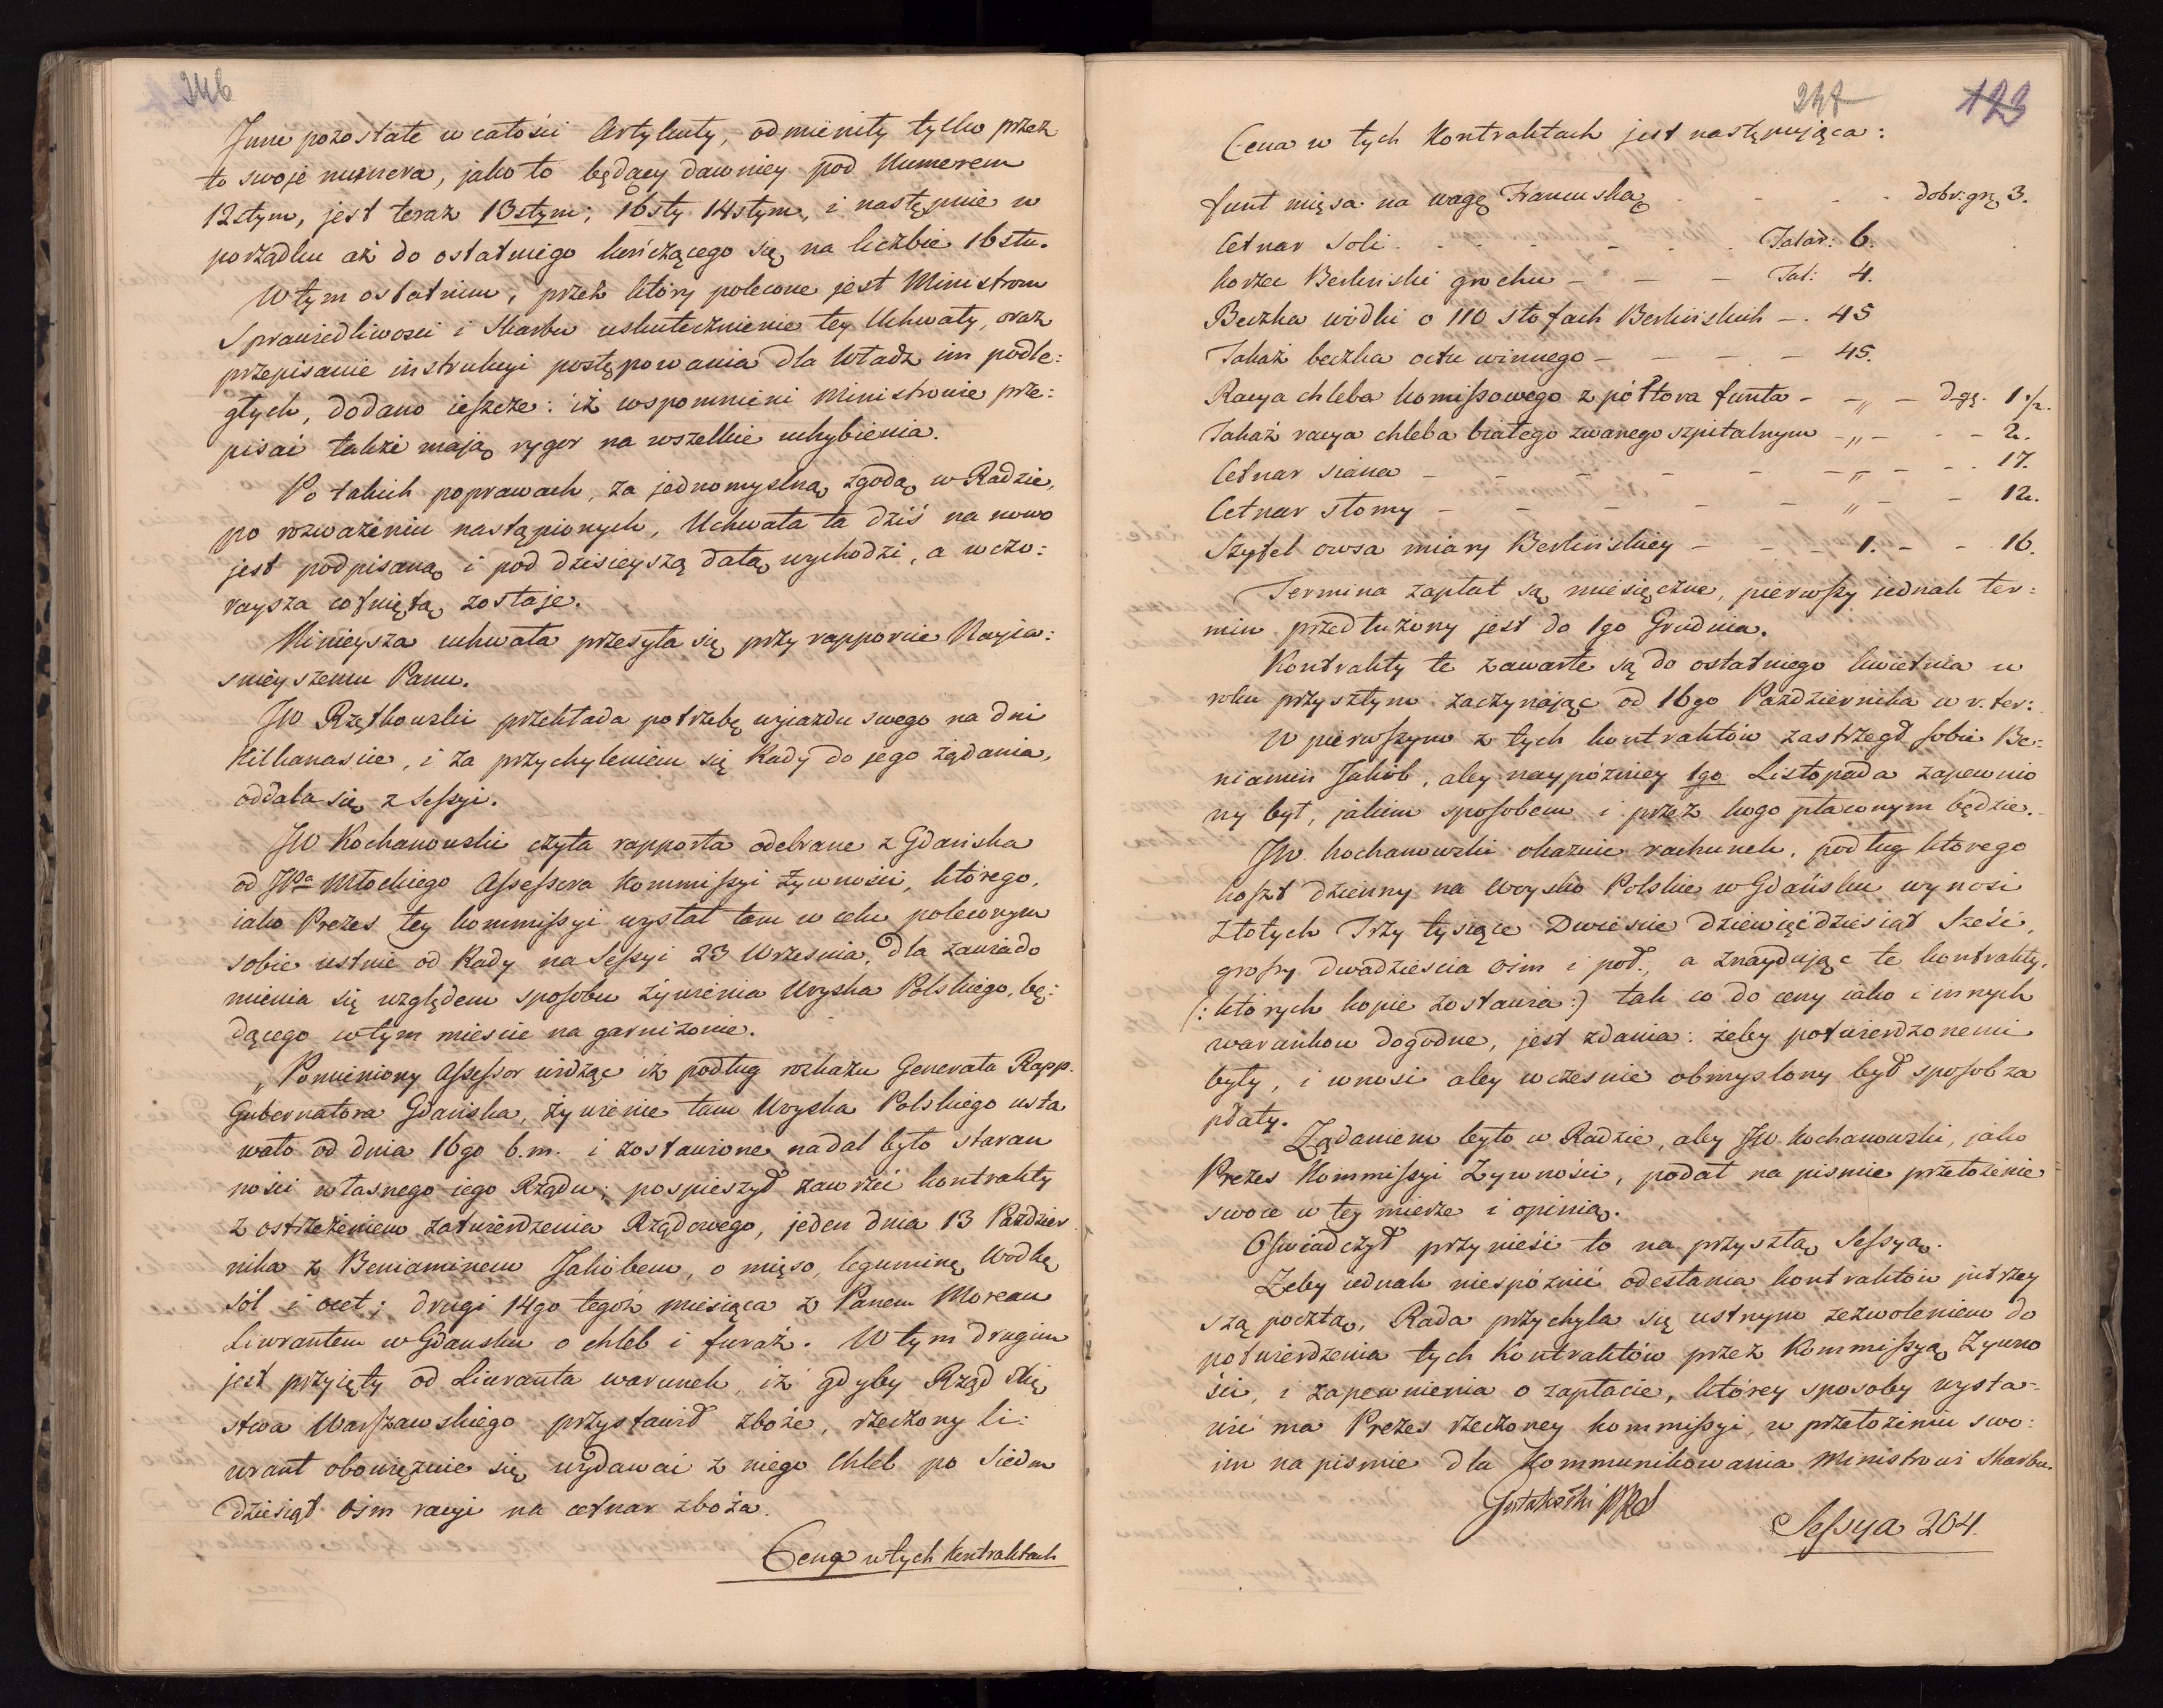 246
Inne pozostałe w całości Artykuły, odmieniły tylko przez
to swoje numera, jako to będący dawniey pod Numerem
12stym, jest teraz 13stym; 16sty 14stym, i następnie w
porządku aż do ostatniego kończącego się na liczbie 16stu.
W tym ostatnim, przez który polecone jest Ministrom
Sprawiedliwości i Skarbu uskutecznienie tey Uchwały, oraz
przepisanie instrukcyi postępowania dla Władz im podle:
głych, dodano ieszcze: iż wspomnieni Ministrowie prze:
pisać także mają rygor na wszelkie uchybienia.
Po takich poprawach, za jednomyslną zgodą w Radzie,
po rozważeniu nastąpionych, Uchwała ta dziś na nowo
jest podpisaną i pod dzisieyszą datą wychodzi, a wczo:
raysza cofniętą zostaje.
Ninieysza uchwała przesyła się przy rapporcie Nayia:
snieyszemu Panu.
JW Rzętkowski przekłada potrzebę wyjazdu swego na dni
kilkanascie, i za przychyleniem się Rady do jego żądania,
oddala się z Sessyi.
JW Kochanowski czyta rapporta odebrane z Gdańska
od JPa Młockiego Assessora Kommissyi Żywności, którego,
iako Prezes tey kommissyi wysłał tam w celu poleconym
sobie ustnie od Rady na Sessyi 23 Wrzesnia, dla zawiado
mienia się względem sposobu żywienia Woyska Polskiego, bę:
dącego w tym miescie na garnizonie.
„Pomieniony Assessor widząc iż podług rozkazu Generała Rapp.
Gubernatora Gdańska, żywienie tam Woyska Polskiego usta
wało od dnia 16go b.m. i zostawione nadal było staran
ności własnego iego Rządu; pospieszył zawrzeć kontrakty
z ostrzeżeniem zatwierdzenia Rządowego, jeden dnia 13 Paździer
nika z Beniaminem Jakóbem, o mięso, leguminę, Wodkę
sól i ocet; drugi 14go tegoż miesiąca z Panem Moreau
Liwrantem w Gdansku o chleb i furaż. W tym drugim
jest przyięty od Liwranta warunek, iż gdyby Rząd Xię
stwa Warszawskiego przystawił zboże, rzeczony Li:
wrant obowięzuie się wydawać z niego Chleb po Siedm
dziesiąt ośm racyi na cetnar zboża.
Cena w tych Kontraktach
247 123
Cena w tych Kontraktach jest następująca:
funt mięsa na wagę Francuską - - - - dobr: grę 3.
Cetnar soli - - - - - - Talar: 6.
korzec Berliński grochu - - - Tal: 4.
Beczka wódki o 110 stofach Berlińskich - . 45
Takaż beczka octu winnego - - - - 45.
Racya chleba komissowego z półtora funta - - „ - d. gę. 1 1/2.
Takaż racya chleba białego zwanego szpitalnym - „ - - - 2.
Cetnar siana - - - - - - „ - - - 17.
Cetnar słomy - - - - - „ - - 12.
Szyfel owsa miary Berlińskiey - - - 1. - - 16.
Termina zapłat są miesięczne, pierwszy jednak ter:
min przedłużony jest do 1go Grudnia.
Kontrakty te zawarte są do ostatniego kwietnia w
roku przyszłym zaczynając od 16go Pazdziernika w r. ter:
W pierwszym z tych kontraktów zastrzegł sobie Be:
niamin Jakób, aby naypóźniey 1go Listopada zapewnio
ny był, jakim sposobem i przez kogo płaconym będzie.
JW. Kochanowski okazuie rachunek, podług ktorego
koszt dzienny na Woysko Polskie w Gdańsku wynosi
Złotych Trzy tysiące Dwiescie dziewięćdziesiąt Sześć,
groszy dwadziescia ośm i poł:, a znayduiąc te kontrakty,
(: których kopie zostawia:) tak co do ceny iako i innych
warunkow dogodne, jest zdania: żeby potwierdzonemi
były, i wnosi aby wczesnie obmyslony był sposob za
płaty.
Żądaniem było w Radzie, aby JW. Kochanowski, jako
Prezes Kommissyi Żywności, podał na pismie przełożenie
swoie w tey mierze i opinią.
Oświadczył przynieść to na przyszłą Sessyą.
Żeby iednak niespóźnić odesłania kontraktów jutrzey
szą pocztą, Rada przychyla się ustnym zezwoleniem do
potwierdzenia tych Kontraktów przez Kommissyą Żywno
ści, i zapewnienia o zapłacie, którey sposoby wysta-
wić ma Prezes rzeczoney kommissyi, w przełożeniu swo:
im na pismie dla Kommunikowania Ministrowi Skarbu.
Sessya 204.